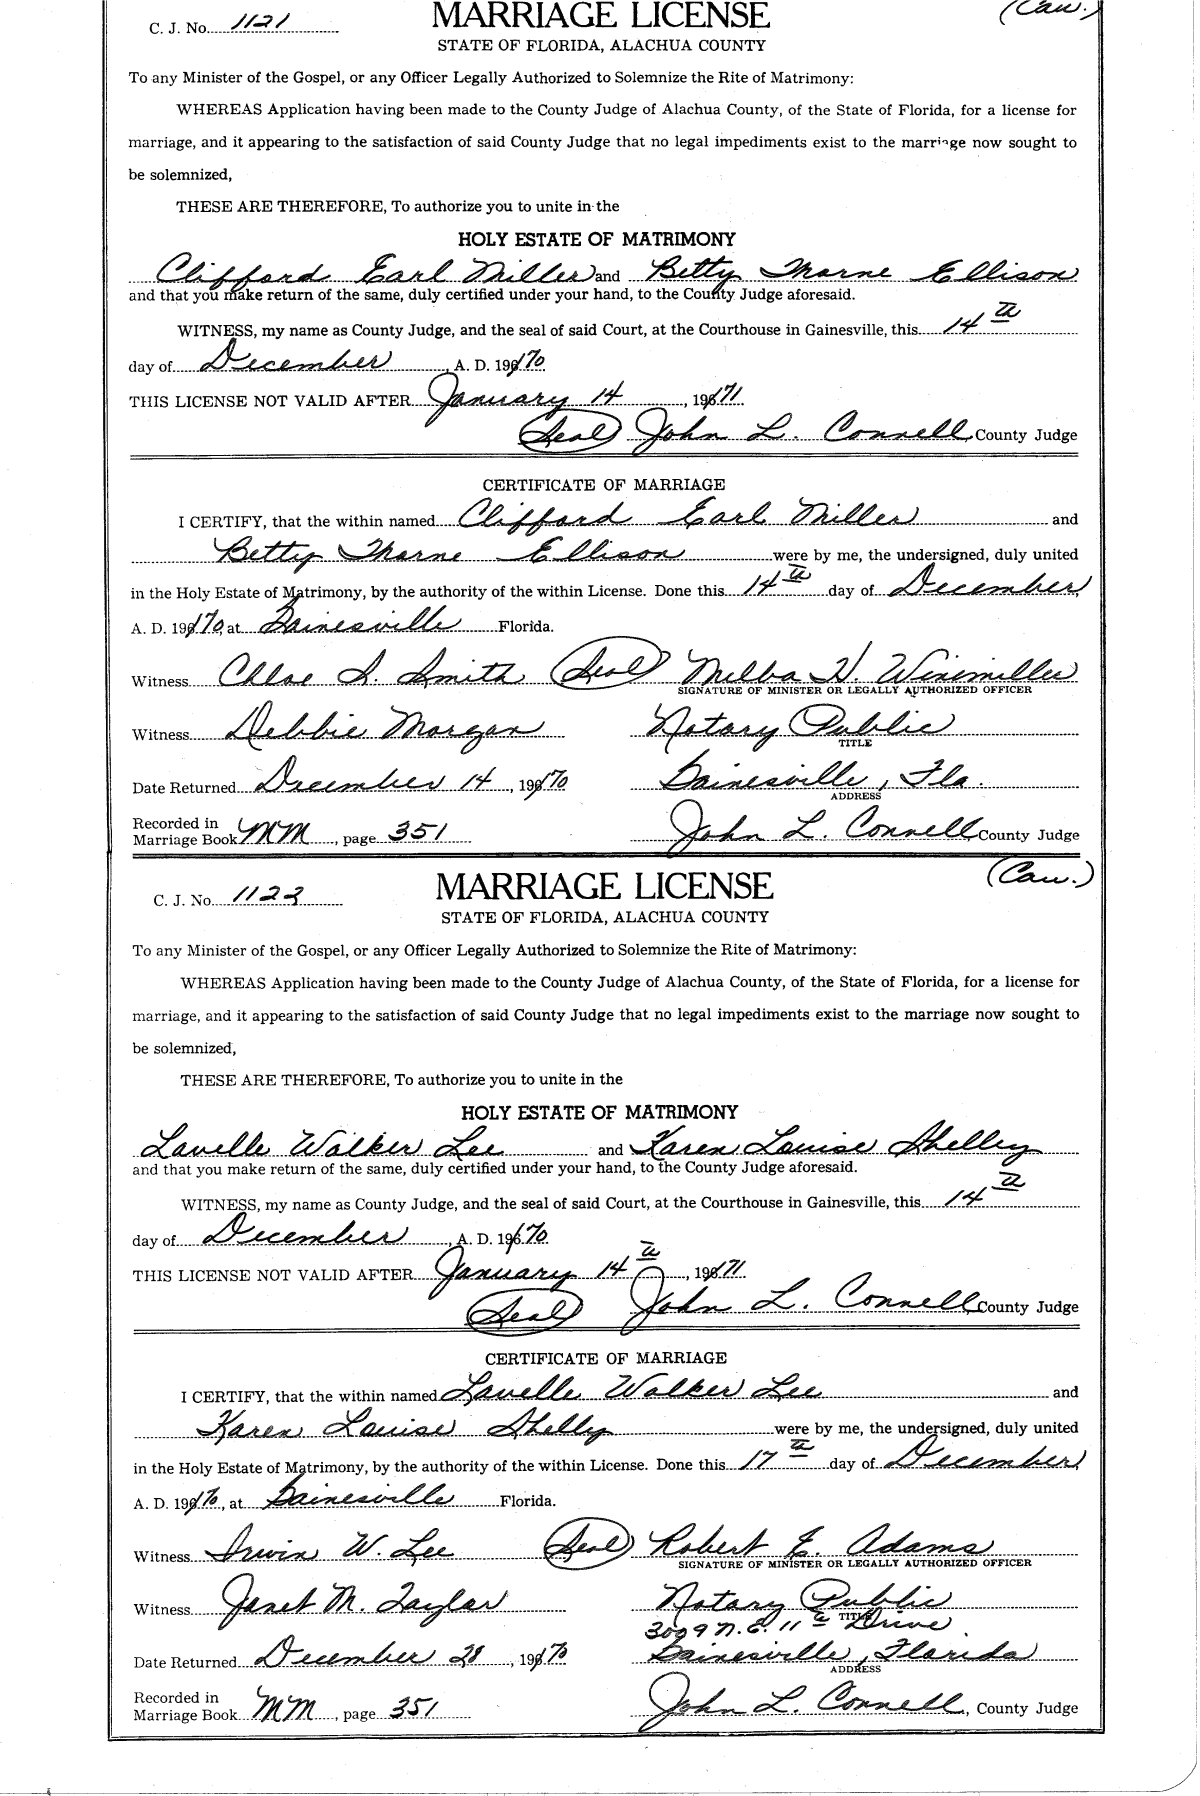 C. J. No. 1121 MARRIAGE LICENSE (Cau.)
STATE OF FLORIDA, ALACHUA COUNTY
To any Minister of the Gospel, or any Officer Legally Authorized to Solemnize the Rite of Matrimony:
WHEREAS Application having been made to the County Judge of Alachua County, of the State of Florida, for a license for
marriage, and it appearing to the satisfaction of said County Judge that no legal impediments exist to the marriage now sought to
be solemnized,
THESE ARE THEREFORE, To authorize you to unite in the
HOLY ESTATE OF MATRIMONY
Clifford Earl Miller and Betty Thorne Ellison
and that you make return of the same, duly certified under your hand, to the County Judge aforesaid.
WITNESS, my name as County Judge, and the seal of said Court, at the Courthouse in Gainesville, this 14th
day of December, A. D. 1970
THIS LICENSE NOT VALID AFTER January 14, 1971
(Seal) John L. Connell County Judge
CERTIFICATE OF MARRIAGE
I CERTIFY, that the within named Clifford Earl Miller and
Betty Thorne Ellison were by me, the undersigned, duly united
in the Holy Estate of Matrimony, by the authority of the within License. Done this 14th day of December,
A. D. 1970, at Gainesville Florida.
Witness Chloe S. Smith (Seal) Melba H. Winemiller
SIGNATURE OF MINISTER OR LEGALLY AUTHORIZED OFFICER
Witness Debbie Morgan Notary Public
TITLE
Date Returned December 14, 1970 Gainesville, Fla.
ADDRESS
Recorded in
Marriage Book MM, page 351 John L. Connell County Judge
C. J. No. 1123 MARRIAGE LICENSE (Cau.)
STATE OF FLORIDA, ALACHUA COUNTY
To any Minister of the Gospel, or any Officer Legally Authorized to Solemnize the Rite of Matrimony:
WHEREAS Application having been made to the County Judge of Alachua County, of the State of Florida, for a license for
marriage, and it appearing to the satisfaction of said County Judge that no legal impediments exist to the marriage now sought to
be solemnized,
THESE ARE THEREFORE, To authorize you to unite in the
HOLY ESTATE OF MATRIMONY
Lavelle Walker Lee and Karen Louise Shelley
and that you make return of the same, duly certified under your hand, to the County Judge aforesaid.
WITNESS, my name as County Judge, and the seal of said Court, at the Courthouse in Gainesville, this 14th
day of December, A. D. 1970
THIS LICENSE NOT VALID AFTER January 14th, 1971
(Seal) John L. Connell County Judge
CERTIFICATE OF MARRIAGE
I CERTIFY, that the within named Lavelle Walker Lee and
Karen Louise Shelley were by me, the undersigned, duly united
in the Holy Estate of Matrimony, by the authority of the within License. Done this 17th day of December,
A. D. 1970, at Gainesville Florida.
Witness Irwin W. Lee (Seal) Robert E. Adams
SIGNATURE OF MINISTER OR LEGALLY AUTHORIZED OFFICER
Witness Janet M. Taylor Notary Public
TITLE
3009 N. E. 11th Drive
Date Returned December 28, 1970 Gainesville, Florida
ADDRESS
Recorded in
Marriage Book MM, page 351 John L. Connell, County Judge